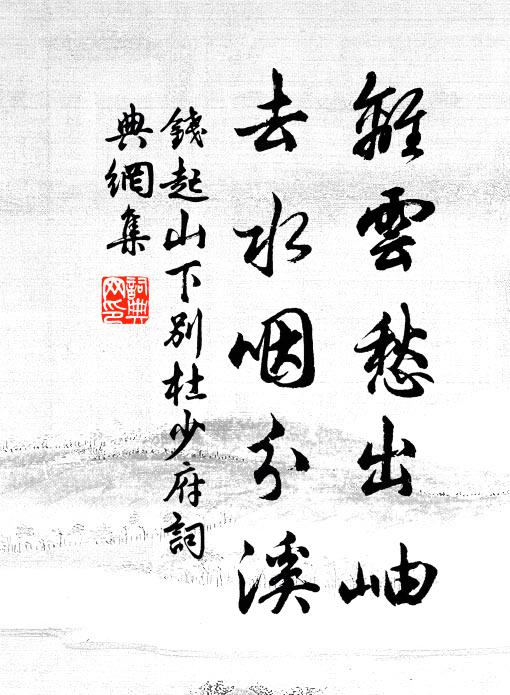 離雲愁出岫
去水咽分溪
錢起山下別杜少府詞
典網集
詞典
网印